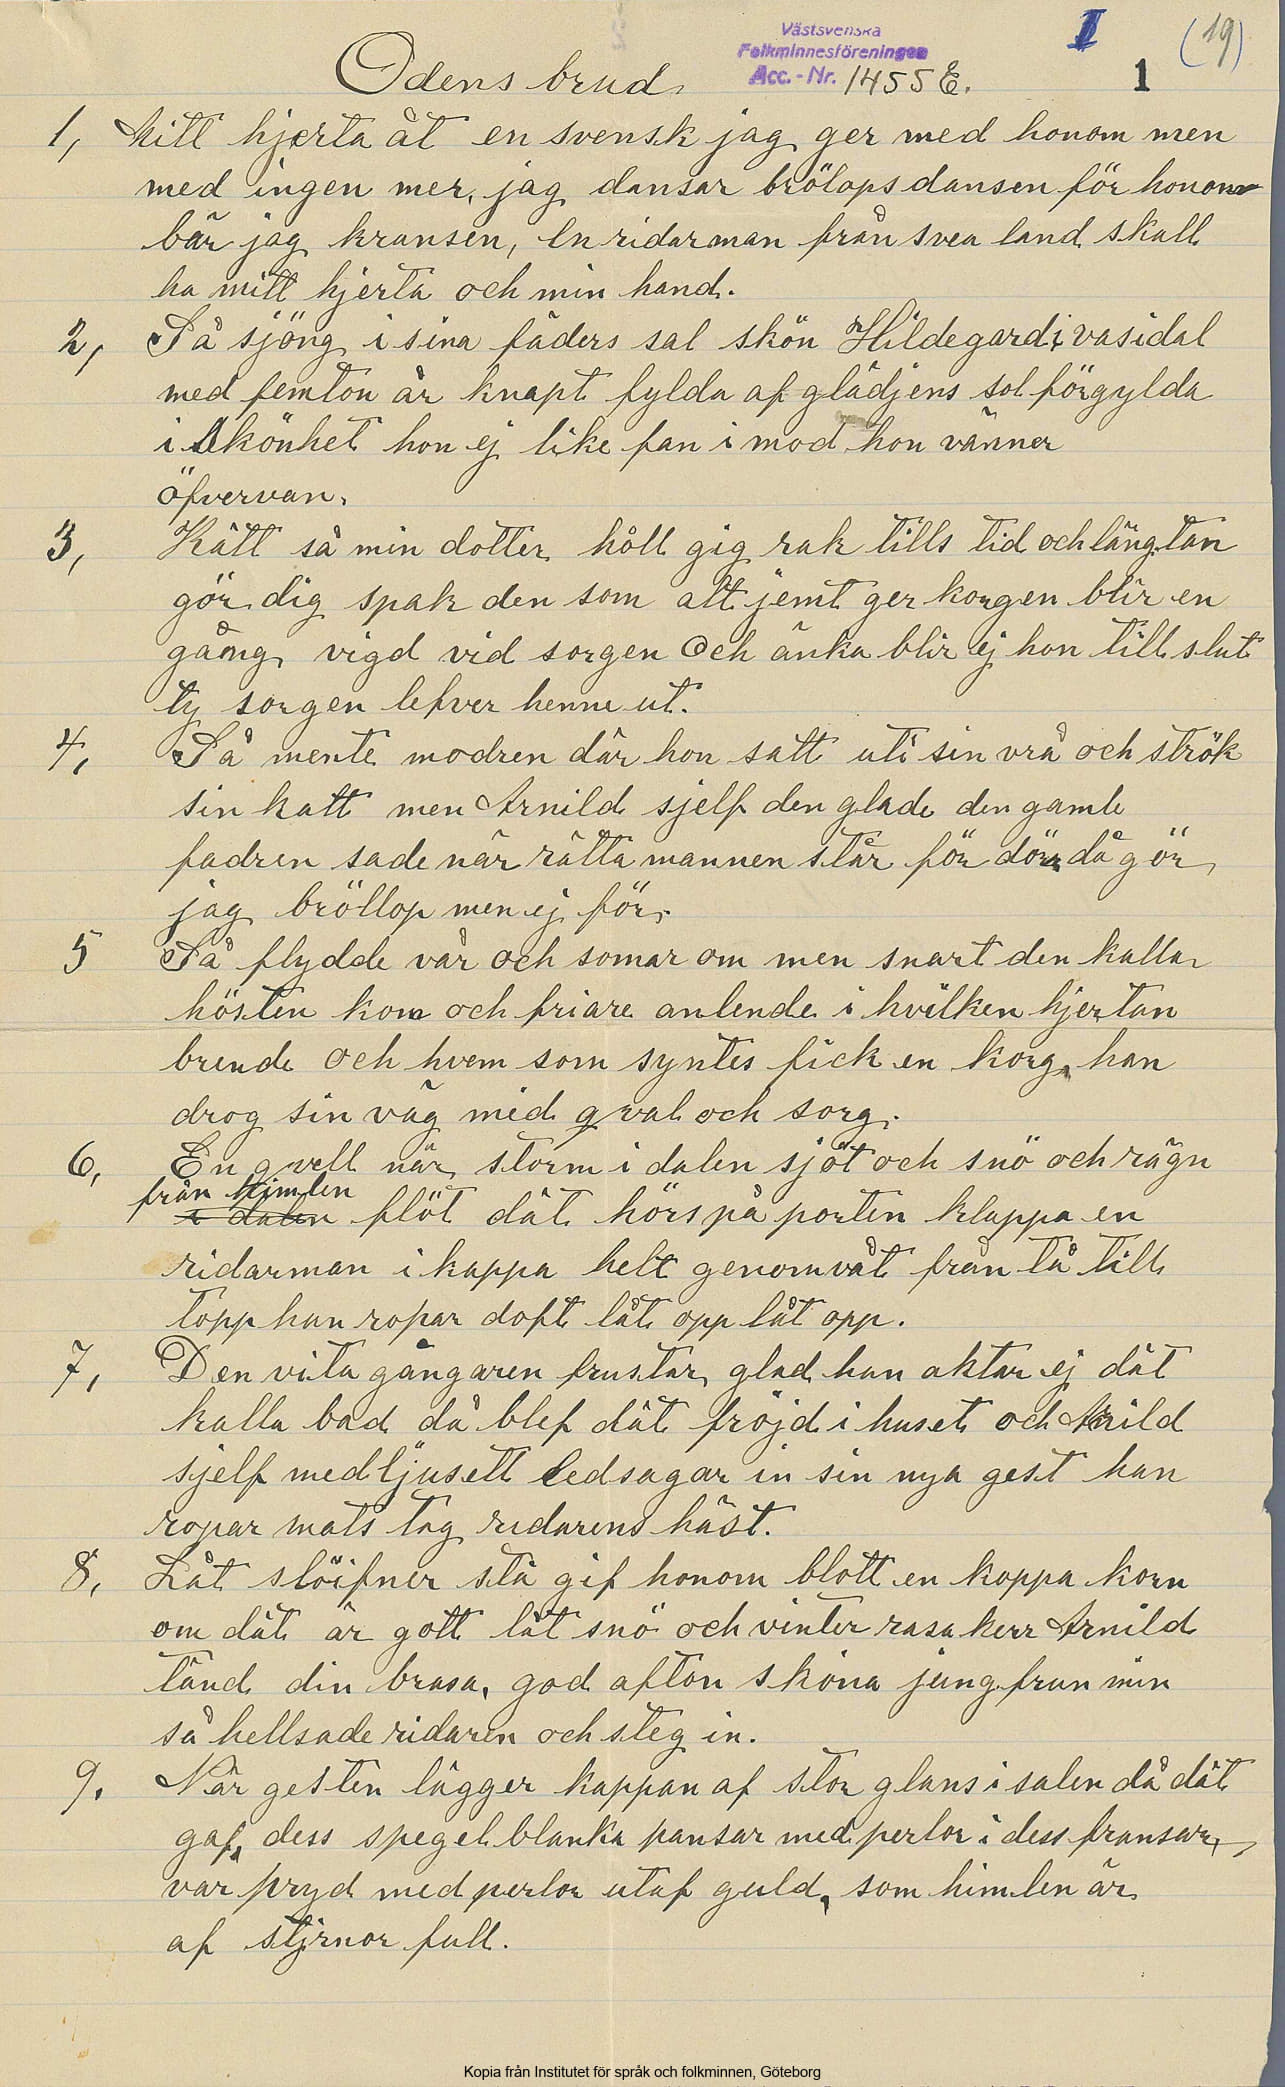 Västsvenska
Folkminnesföreningen
Acc.-Nr. 1455 E.
I (19)
1
Odens brud
1, Mitt hjerta åt en svensk jag ger med honom men
med ingen mer, jag dansar brölopsdansen för honom
bär jag kransen, En ridarman från svea land skall
ha mitt hjerta och min hand.
2, Så sjöng i sina fäders sal skön Hildegard i vasidal
med femton år knapt fylda af glädjens sol förgylda
i skönhet hon ej like fan i mod hon vänner
öfvervan.
3, Kätt så min dotter håll gig rak tills tid och längtan
gör dig spak den som alt jemt ger korgen blir en
gång vigd vid sorgen Och änka blir ej hon till slut
ty sorgen lefver henne ut.
4, Så mente modren där hon satt uti sin vrå och strök
sin katt men Arnild sjelf den glade den gamle
fadren sade när rätta mannen står för dörr då gör
jag bröllop men ej för.
5 Så flydde vår och somar om men snart den kalla
hösten kom och friare anlende i hvilken hjertan
brende och hvem som syntes fick en korg, han
drog sin väg med qval och sorg.
6, En qvell när storm i dalen sjöt och snö och rägn
från himlen
i dalen flöt dät hörs på porten klappa en
ridarman i kappa helt genomvåt från tå till
topp han ropar doft låt opp låt opp.
7, Den vita gångaren frustar glad han aktar ej dät
kalla bad då blef dät fröjd i huset och Arnild
sjelf med ljusett ledsagar in sin nya gest han
ropar mats tag ridarens häst.
8, Låt slöifner stå gif honom blott en koppa korn
om dät är gott låt snö och vinter rasa herr Arnild
tänd din brasa, god afton sköna jungfrun min
så hellsade ridaren och steg in.
9. När gesten lägger kappan af stor glans i salen då dät
gaf, dess spegelblanka pansar med perlor i dess fransar,
var pryd med perlor utaf guld, som himlen är
af stjrnor full.
Kopia från Institutet för språk och folkminnen, Göteborg